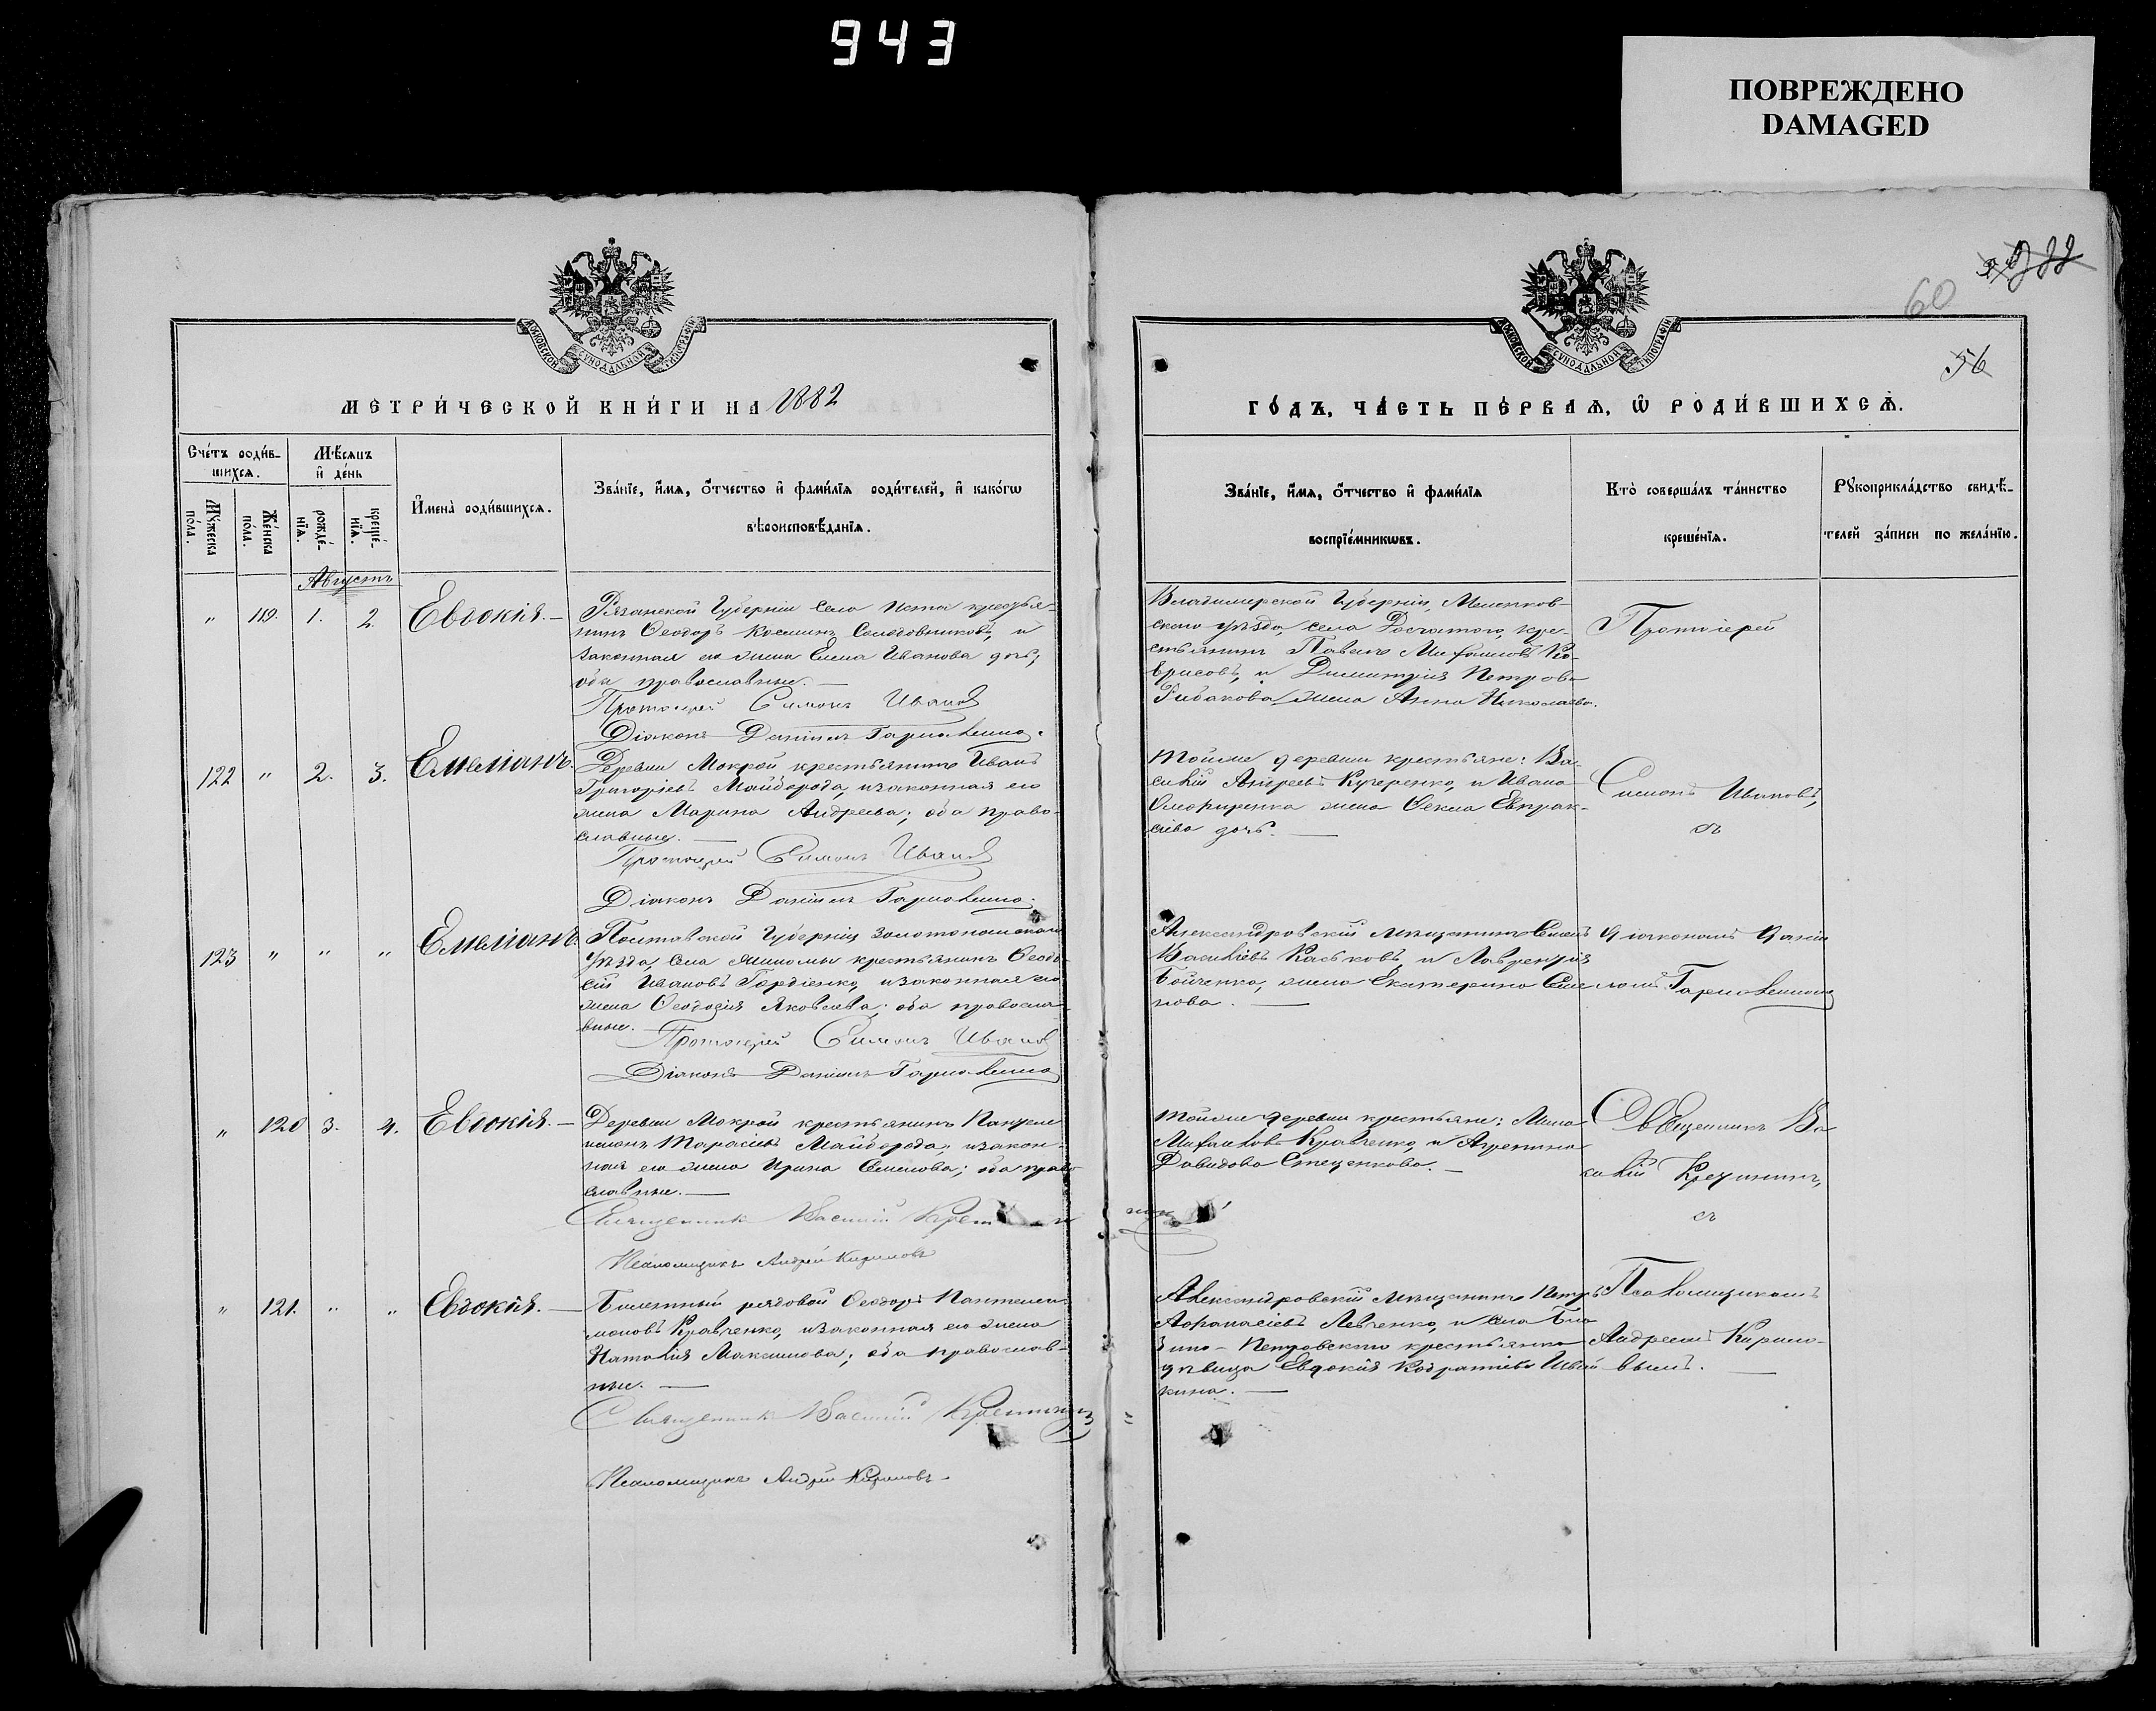 943
ПОВРЕЖДЕНО
DAMAGED
60
56
МОСКОВСКОЙ СѴНОДАЛЬНОЙ ТИПОГРАФІИ
МОСКОВСКОЙ СѴНОДАЛЬНОЙ ТИПОГРАФІИ
МЕТРИ́ЧЕСКОЙ КНИ́ГИ НА 1882
ГО́ДЪ, ЧА́СТЬ ПЕ́РВАѦ, Ѡ РОДИ́ВШИХСѦ.
Сче́тъ роди́в-
шихсѧ.
Мꙋжеска
по́ла.
Же́нска
по́ла.
Мѣ́сѧцъ
и де́нь
рожде́-
нїѧ.
креще́-
нїѧ.
Имена̀ роди́вшихсѧ.
Зва́нїе, и́мѧ, о́тчество и фами́лїѧ роди́телей, и како́гѡ
вѣроисповѣ́данїѧ.
Зва́нїе, и́мѧ, о́тчество и фами́лїѧ
воспрїе́мникѡвъ.
Кто̀ соверша́лъ та́инство
креще́нїѧ.
Рꙋкоприкла́дство свидѣ́-
телей за́писи по жела́нїю.
Августъ
" 119. 1. 2. Евдокія. —
Рязанской Губерніи села Иста крестья-
нинъ Ѳеодоръ Косминъ Солодовниковъ, и
законная его жена Елена Иванова дочь;
оба православные. —
Протоіерей Симонъ Ивановъ
Діаконъ Даніилъ
Владимерской Губерніи, Меленков-
скаго уѣзда, села Досчатого, кре-
стьянинъ Павелъ Михаиловъ
и Димитрія Петрова
Рибакова жена Анна Николаева.
Протоіерей
122 " 2. 3. Емеліанъ.
Деревни Мокрой крестьянинъ Иванъ
Григоріевъ Майборода, изаконная его
жена Марина Андреева; оба право-
славные. —
Протоіерей Симонъ Ивановъ
Діаконъ Даніилъ
Тойже деревни крестьяне: Ва-
силій Андреевъ Кучеренко, и Ивана
жена Ѳекла Евпрак-
сіева дочь. —
Симонъ Ивановъ,
съ
123 " " " Емеліанъ.
Полтавской Губерніи Золотоношскаго
Уѣзда, села крестьянинъ Ѳеодо-
сій Ивановъ Гордіенко, изаконная его
жена Ѳеодосія Яковлева; оба православ-
вные.
Протоіерей Симонъ Ивановъ
Діаконъ Даніилъ
Александровскій мѣщанинъ Семенъ
Василіевъ Каськовъ, и Лаврентія
Бойченка, жена Екатерина Семе
нова. —
Діакономъ Даніи
ломъ
" 120 3. 4. Евдокія. —
Деревни Мокрой крестьянинъ Пантеле
имонъ Тарасіевъ Майборода, изакон-
ная его жена Ирина Семенова; оба право
славные. —
Священникъ Василій
Псаломщикъ Андрей Кириловъ
Тойже деревни крестьяне: Мина
Михаиловъ Кравченко, и Агрепина
Давидова Стеценкова. —
Священникъ Ва
силій
съ
" 121. " " Евдокія. —
Билетный рядовой Ѳеодоръ Пантелеи
моновъ Кравченко, изаконная его жена
Наталія Максимова; оба православ-
ные. —
Священникъ Василій
Псаломщикъ Андрей Кириловъ
Александровскій мѣщанинъ Петръ
Афанасіевъ Левченко, и села
Петровскаго крестьянка
дѣвица Евдокія
кина. —
Псаломщикомъ
Андреемъ Кирило-
вымъ. —